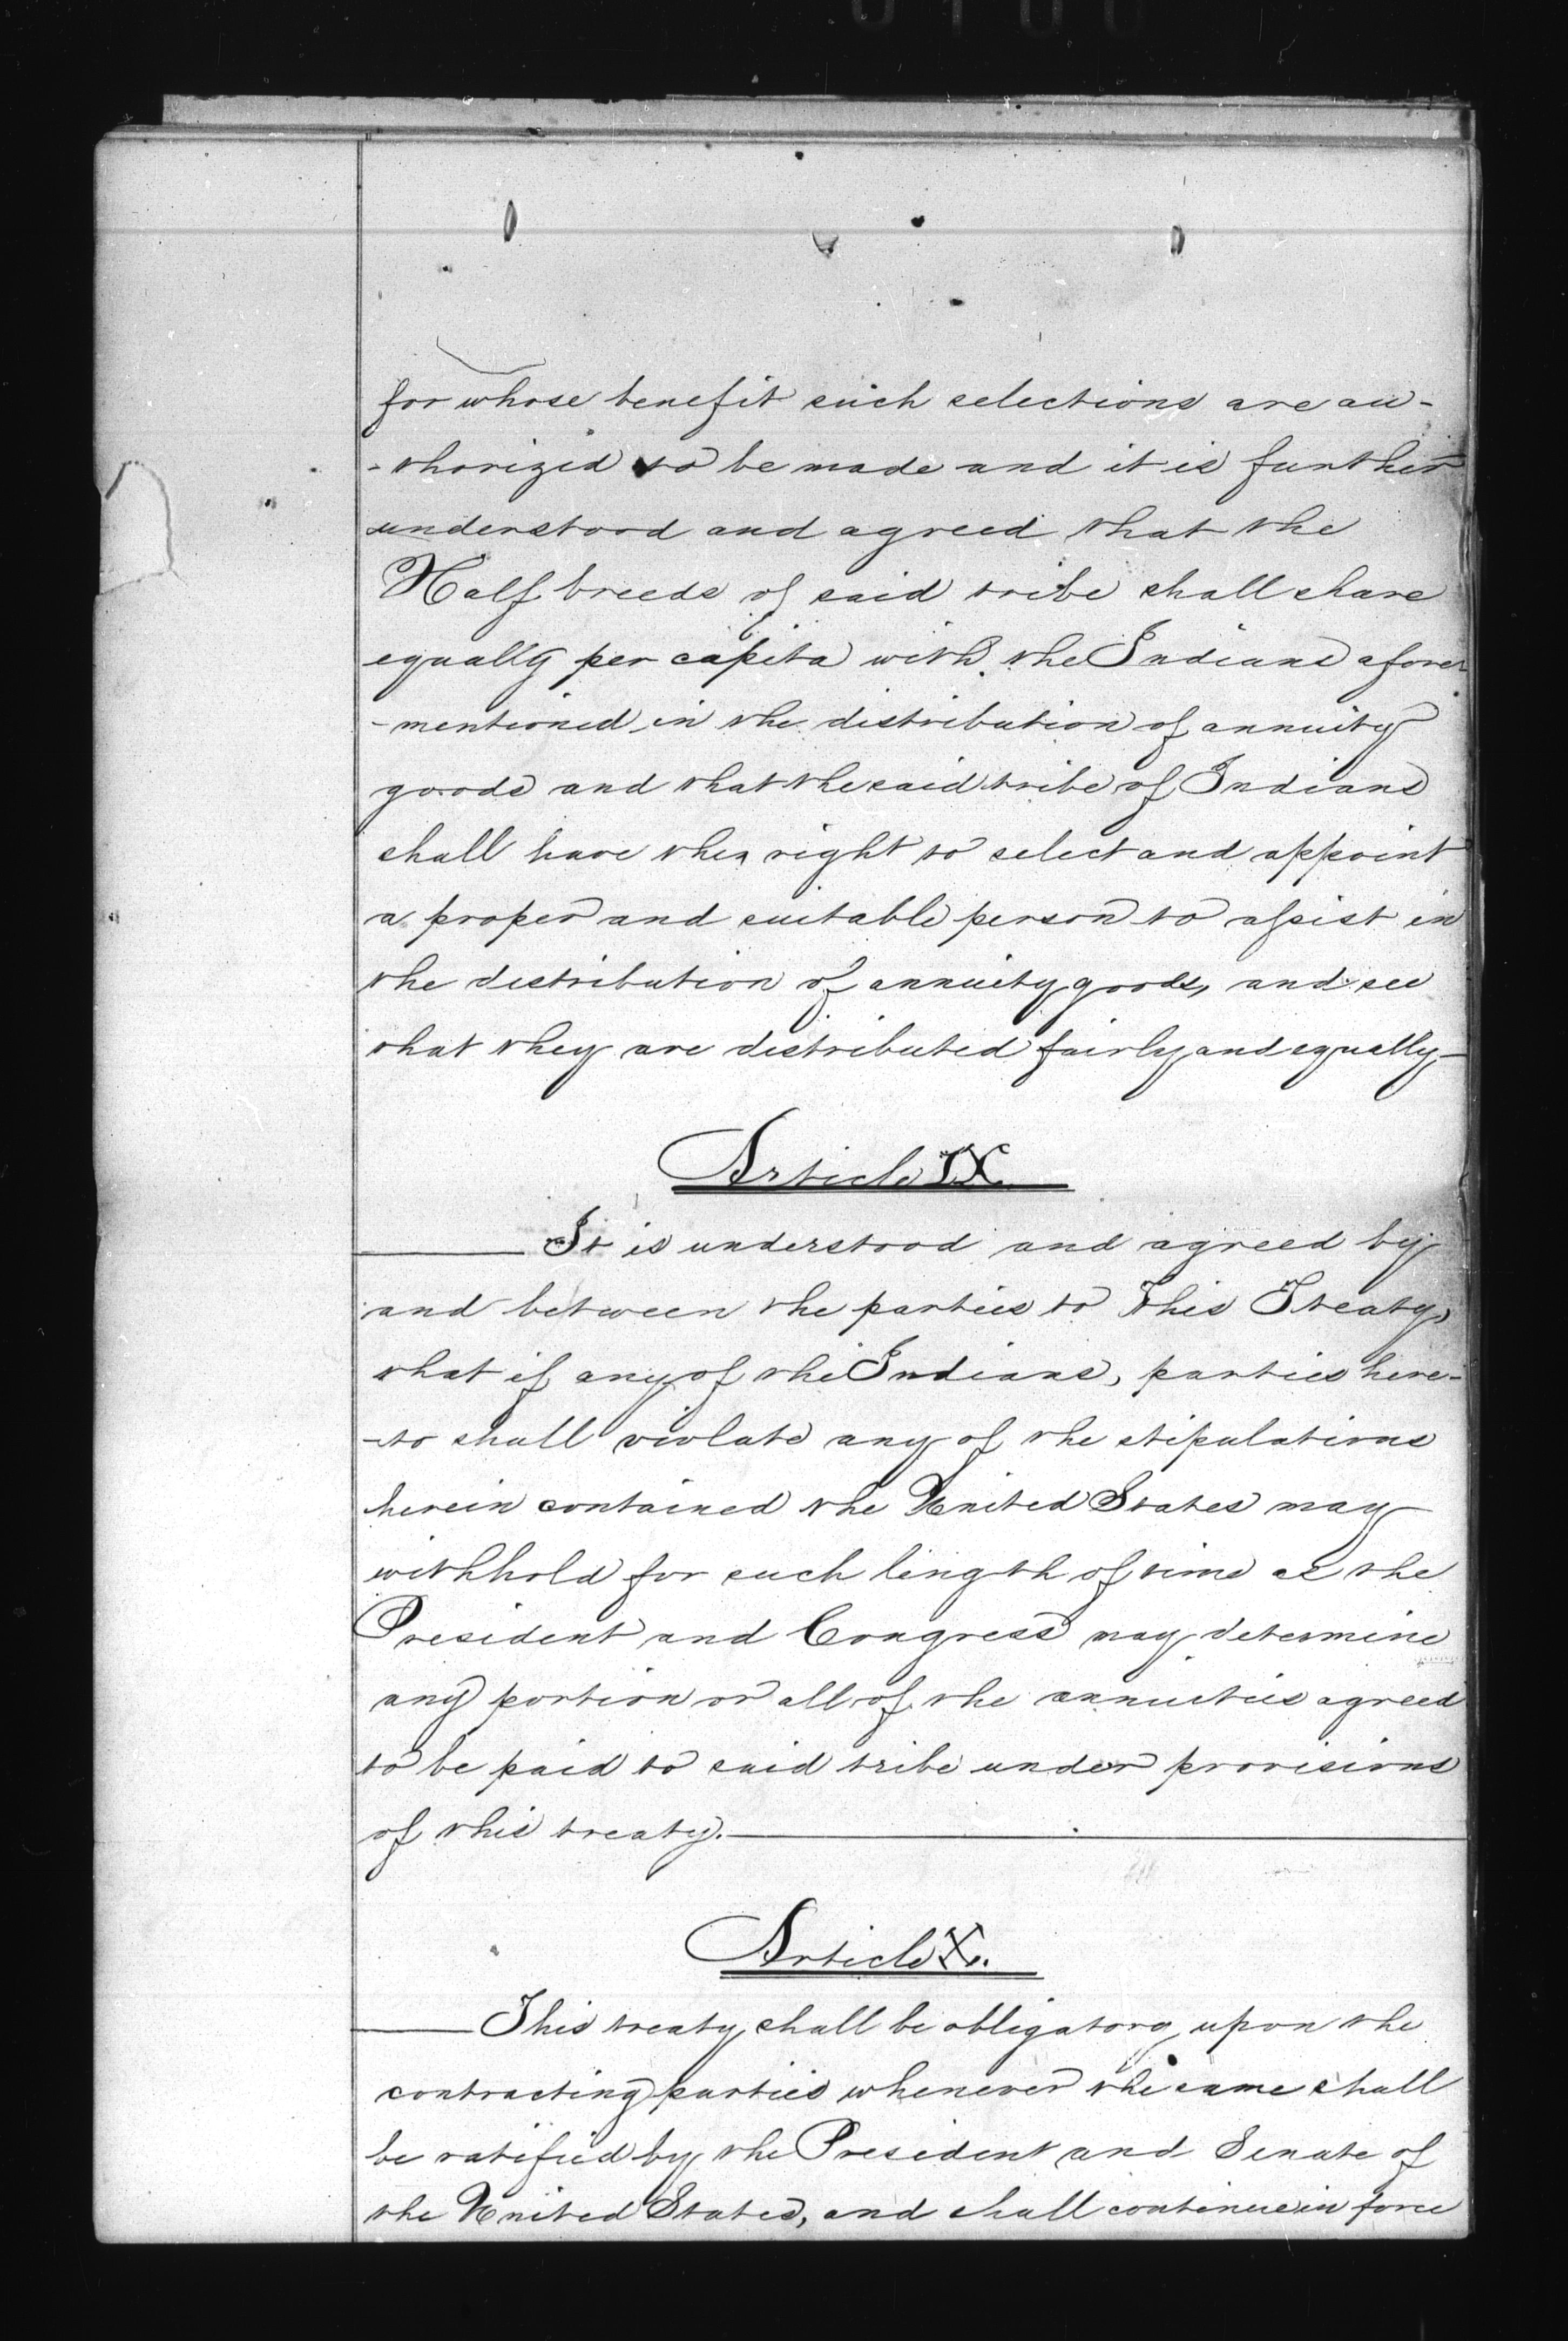 for whose benefit such selections are au-
-thorized to be made and it is further
understood and agreed that the
Half breeds of said tribe shall share
equally per capita with the Indians afore
-mentioned in the distribution of annuity
goods and that the said tribe of Indians
shall have the right to select and appoint
a proper and suitable person to assist in
the distribution of annuity goods, and see
that they are distributed fairly and equally—
Article IX.
It is understood and agreed by
and between the parties to this Treaty,
that if any of the Indians, parties here-
-to shall violate any of the stipulations
herein contained the United States may
withhold for such length of time as the
President and Congress may determine
any portion or all of the annuities agreed
to be paid to said tribe under provisions
of this treaty.
Article X.
This treaty shall be obligatory upon the
contracting parties whenever the same shall
be ratified by the President and Senate of
the United States, and shall continue in force